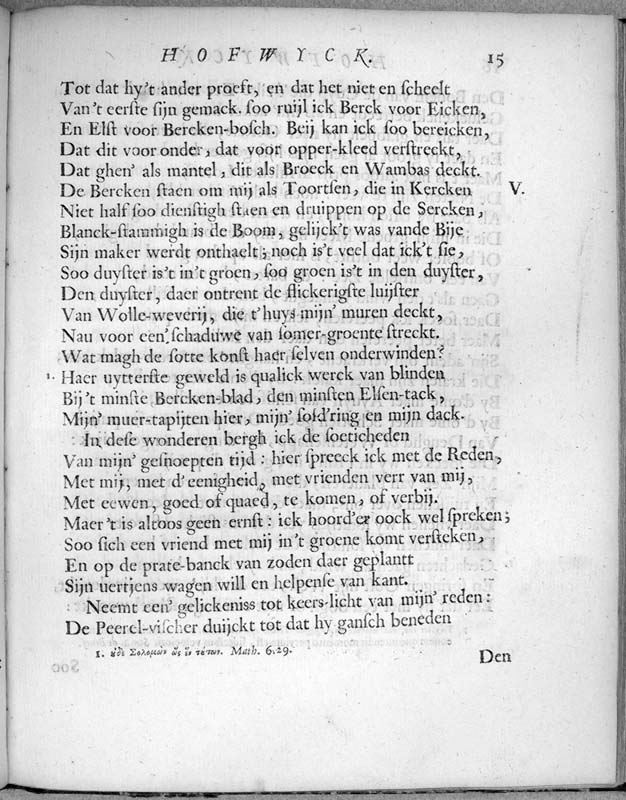 HOFWYCK. 15
Tot dat hy't ander proeft, en dat het niet en scheelt
Van't eerste sijn gemack. soo ruijl ick Berck voor Eicken,
En Elst voor Bercken-bosch. Beij kan ick soo bereicken,
Dat dit voor onder, dat voor opper-kleed verstreckt,
Dat ghen' als mantel, dit als Broeck en Wambas deckt.
De Bercken staen om mij als Toortsen, die in Kercken V.
Niet half soo dienstigh staen en druippen op de Sercken,
Blanck-stammigh is de Boom, gelijck't was vande Bije
Sijn maker werdt onthaelt; noch is't veel dat ick't sie,
Soo duyster is't in't groen, soo groen is't in den duyster,
Den duyster, daer ontrent de flickerigste luijster
Van Wolle-weverij, die t'huys mijn' muren deckt,
Nau voor een' schaduwe van somer-groente streckt.
Wat magh de sotte konst haer selven onderwinden?
1. Haer uytterste geweld is qualick werck van blinden
Bij't minste Bercken-blad, den minsten Elsen-tack,
Mijn' muer-tapijten hier, mijn' sold'ring en mijn dack.
In dese wonderen bergh ick de soeticheden
Van mijn' gesnoepten tijd: hier spreeck ick met de Reden,
Met mij, met d'eenigheid, met vrienden verr van mij,
Met eewen, goed of quaed, te komen, of verbij.
Maer't is altoos geen ernst: ick hoord'er oock wel spreken;
Soo sich een vriend met mij in't groene komt versteken,
En op de prate-banck van zoden daer geplantt
Sijn uertjens wagen will en helpense van kant.
Neemt een' gelickeniss tot keers-licht van mijn' reden:
De Peerel-vischer duijckt tot dat hy gansch beneden
1. ὐδὲ Σολομὼν ὡς ἓν τύτων. Math. 6.29.
Den